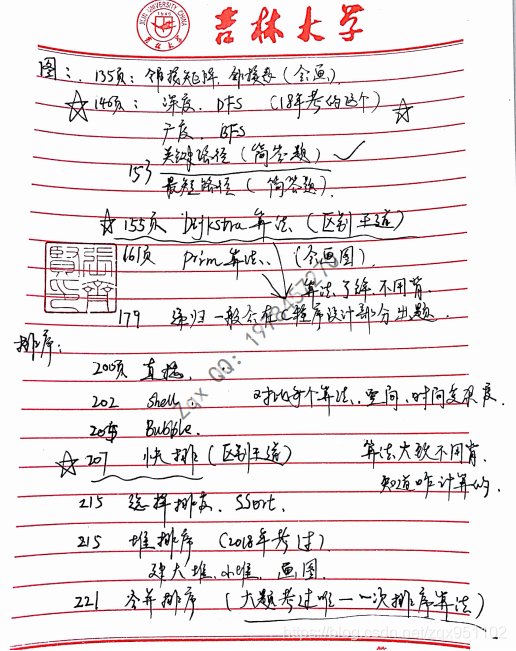 JILIN UNIVERSITY, CHINA
1946
吉林大学
吉林大学
图:. 135页: 邻接矩阵, 邻接表 (会画).
☆ 146页: 深度. DFS (18年考的这个) ☆
广度. BFS
153 关键路径 (简答题) ✓
最短路径 (简答题).
☆ 155页 Dijkstra算法 (区别王道)
161页 Prim算法. (会画图).
算法了解 不用背.
179 递归一般会在C程序设计部分出题.
排序:
200页 直接.
202 Shell 对比每个算法. 空间、时间复杂度.
205 Bubble.
☆ 207 快排 (区别王道) 算法大致不用背.
知道咋计算的.
215 选择排序. SSort.
215 堆排序 (2018年考过)
建大堆. 小堆. 画图.
221 合并排序 (大题考过唯一一次排序算法)
Zqx QQ: 
https://blog.csdn.net/zqx951102